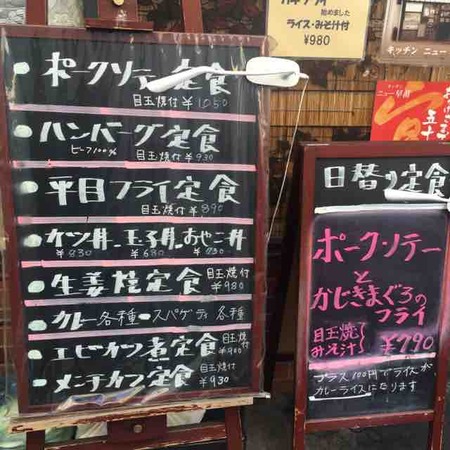 ポークソテー定食
目玉焼付 ¥1050
ハンバーグ定食
ビーフ100% 目玉焼付 ¥930
平目フライ定食
目玉焼付 ¥890
カツ丼・玉子丼・おやこ丼
¥830 ¥680 ¥730
生姜焼定食 目玉焼付 ¥980
カレー各種・スパゲティ各種
エビカツ煮定食 目玉焼付
メンチカツ定食 目玉焼付 ¥930
始めました
ライス・みそ汁付
¥980
キッチン ニュー
キッチン
ニュー早苗
日替り定食
ポークソテー
と
かじきまぐろの
フライ
目玉焼
みそ汁 ¥790
プラス100円でライスが、
カレーライスになります